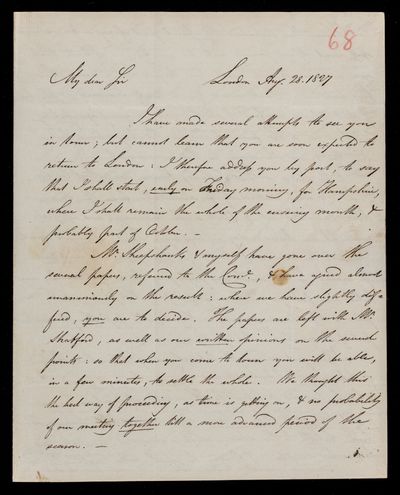 68
My dear Sir London Aug. 28. 1827
I have made several attempts to see you
in town; but cannot learn that you are soon expected to
return to London: I therefore address you by post, to say
that I shall start, early on Friday morning, for Hampshire,
where I shall remain the whole of the ensuing month, &
probably part of October. —
Mr. Sheepshanks & myself have gone over the
several papers, referred to the Comee., & have agreed almost
unanimously on the result: where we have slightly dif-
fered, you are to decide. The papers are left with Mr.
Stratford, as well as our written opinions on the several
points: so that when you come to town you will be able,
in a few minutes, to settle the whole. We thought this
the best way of proceeding, as time is getting on, & no probability
of our meeting together till a more advanced period of the
season. —